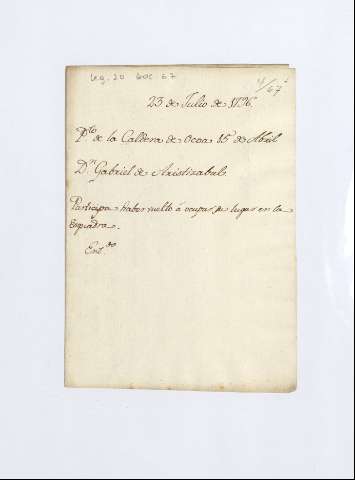 Leg. 20 doc 67
4/67
23 de Julio de 1796
P.to de la Caldera de Ocoa 15 de Abril
D.n Gabriel de Aristizabal.
Participa haber vuelto á ocupar su lugar en la
Esquadra.
Ent.do